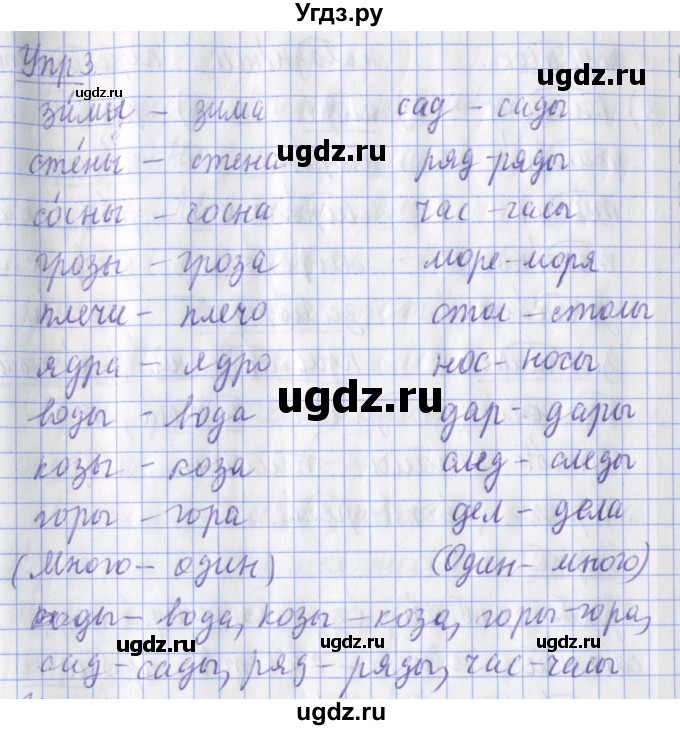 Угдз.ру
Упр 3.
зи́мы – зима сад – сады
сте́ны – стена ряд – ряды
со́сны – сосна час – часы
грозы – гроза море – моря
плечи – плечо стол – столы
ядра – ядро нос – носы
воды – вода дар – дары
козы – коза след – следы
горы – гора дел – дела
(Много – один) (Один – много)
воды – вода, козы – коза, горы – гора,
сад – сады, ряд – ряды, час – часы
ugdz.ru
ugdz.ru
ugdz.ru
ugdz.ru
ugdz.ru
ugdz.ru
ugdz.ru
ugdz.ru
ugdz.ru